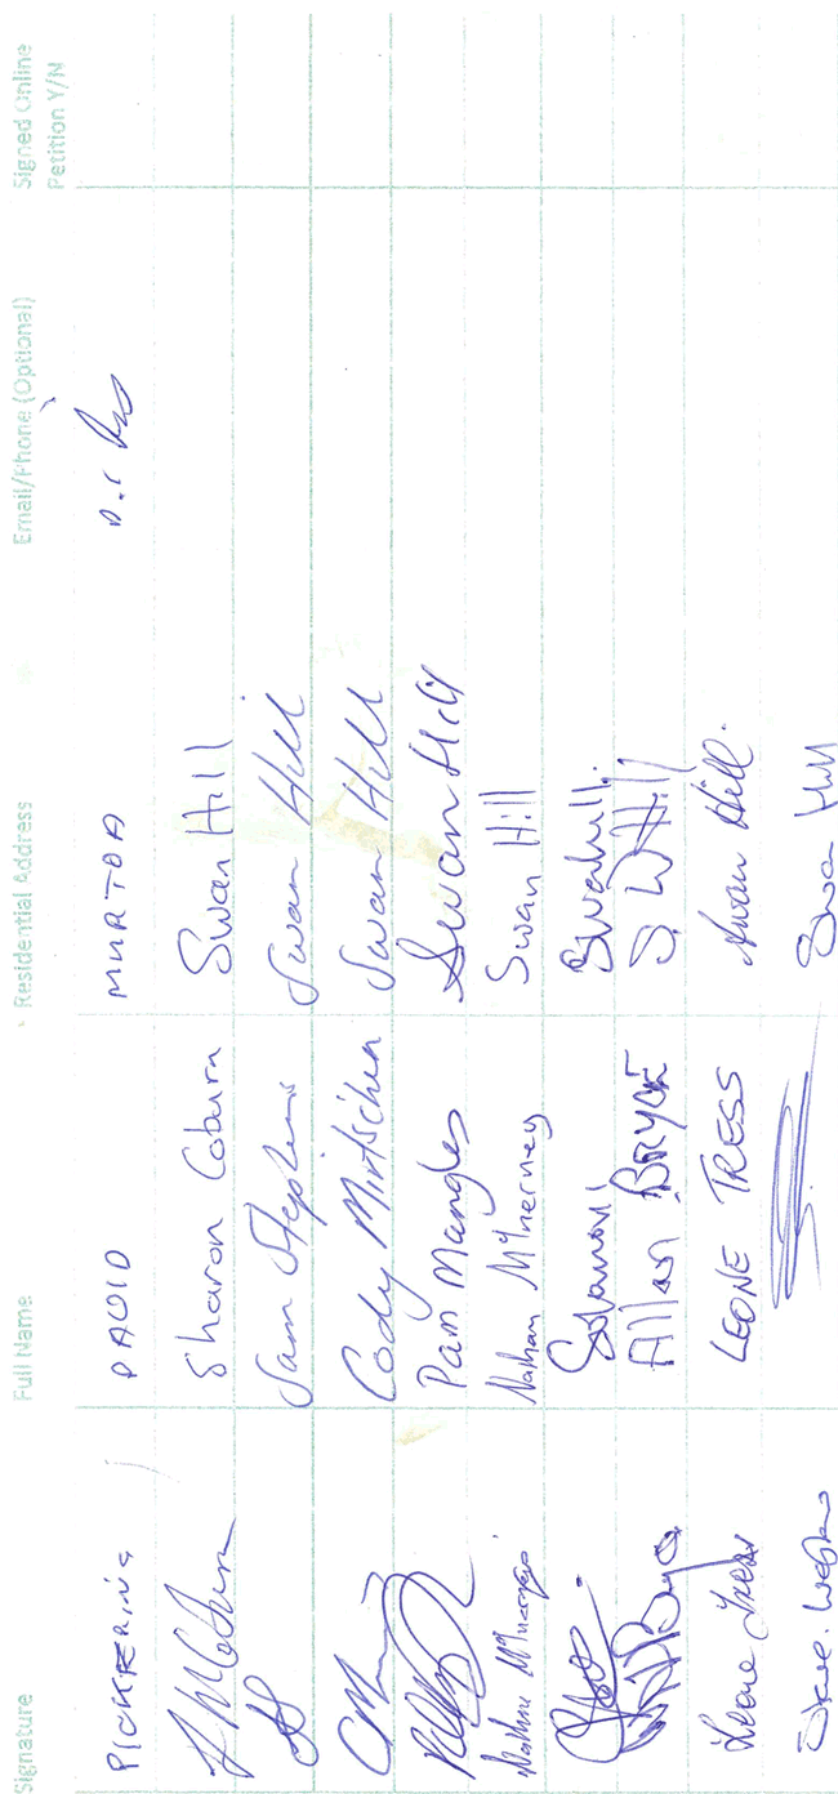 Signature Full Name Residential Address Email/Phone (Optional) Signed Online Petition Y/N
PICKERING DAVID MURTOA
Sharon Coburn Swan Hill
Sam Stephens Swan Hill
Cody Mirtschen Swan Hill
Pam Mangles Swan Hill
Nathan McInerney Nathan McInerney Swan Hill
Swanhill.
Allan BRYCE S W Hill
Leone Tress LEONE TRESS Swan Hill.
Swan Hill